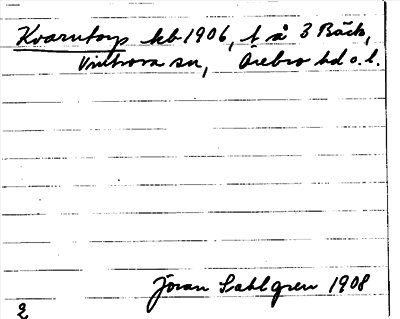 Kvarntorp kb 1906, t å 3 Bäck,
Vintrosa sn, Örebro hd o. l.
Jöran Sahlgren 1908